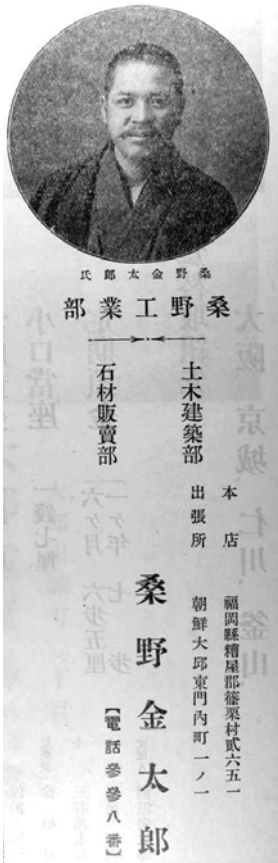 桑野金太郎氏
桑野工業部
土木建築部
石材販賣部
本店 福岡縣糟屋郡篠栗村貳六五一
出張所 朝鮮大邱東門內町一ノ一
桑野金太郎
【電話參參八番】